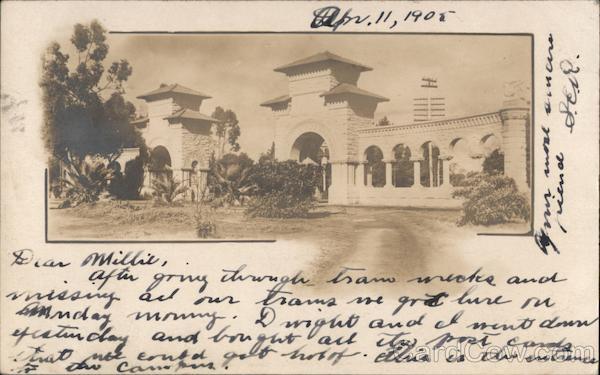 Apr. 11, 1905
Your most sincere
friend
Dear Millie,
After going through train wrecks and
missing all our trains we got here on
Monday morning. Dwight and I went down
yesterday and bought all the Post Cards
that we could get hold of. This is the entrance
to the campus.
CardCow.com